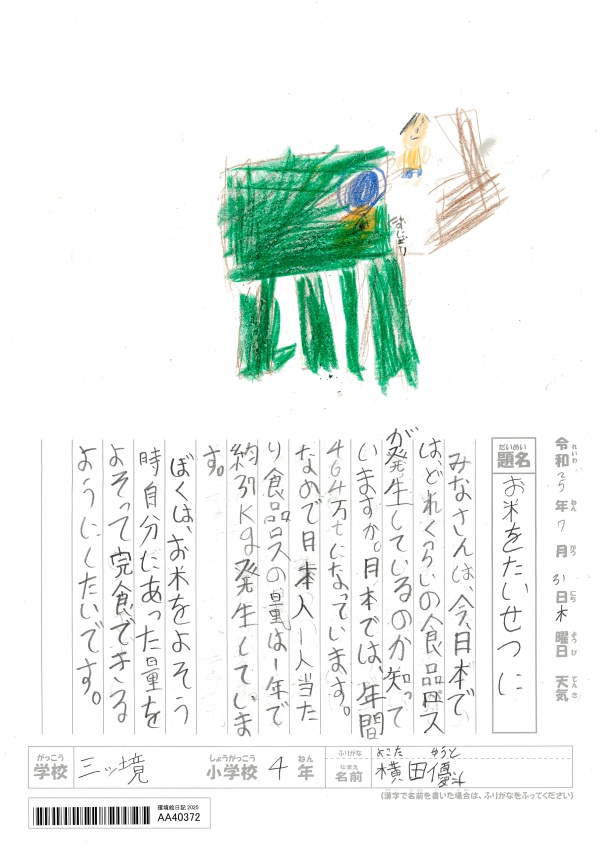 おにぎり
令和 年 7 月 31 日 木 曜日 天気
れいわ ねん がつ にち よう び てんき
だいめい
題名 お米をたいせつに
みなさんは、今、日本で
は、どれくらいの食品ロス
が発生しているのか知って
いますか。日本では、年間
464万tになっています。
なので日本人一人当た
り食品ロスの量は1年で
約37kg発生していま
す。
ぼくは、お米をよそう
時自分にあった量を
よそって完食できる
ようにしたいです。
がっこう しょうがっこう ねん ふりがな よこた ゆうと
学校 三ッ境 小学校 4 年 なまえ 名前 横田優斗
(漢字で名前を書いた場合は、ふりがなをふってください)
環境絵日記 2025
AA40372